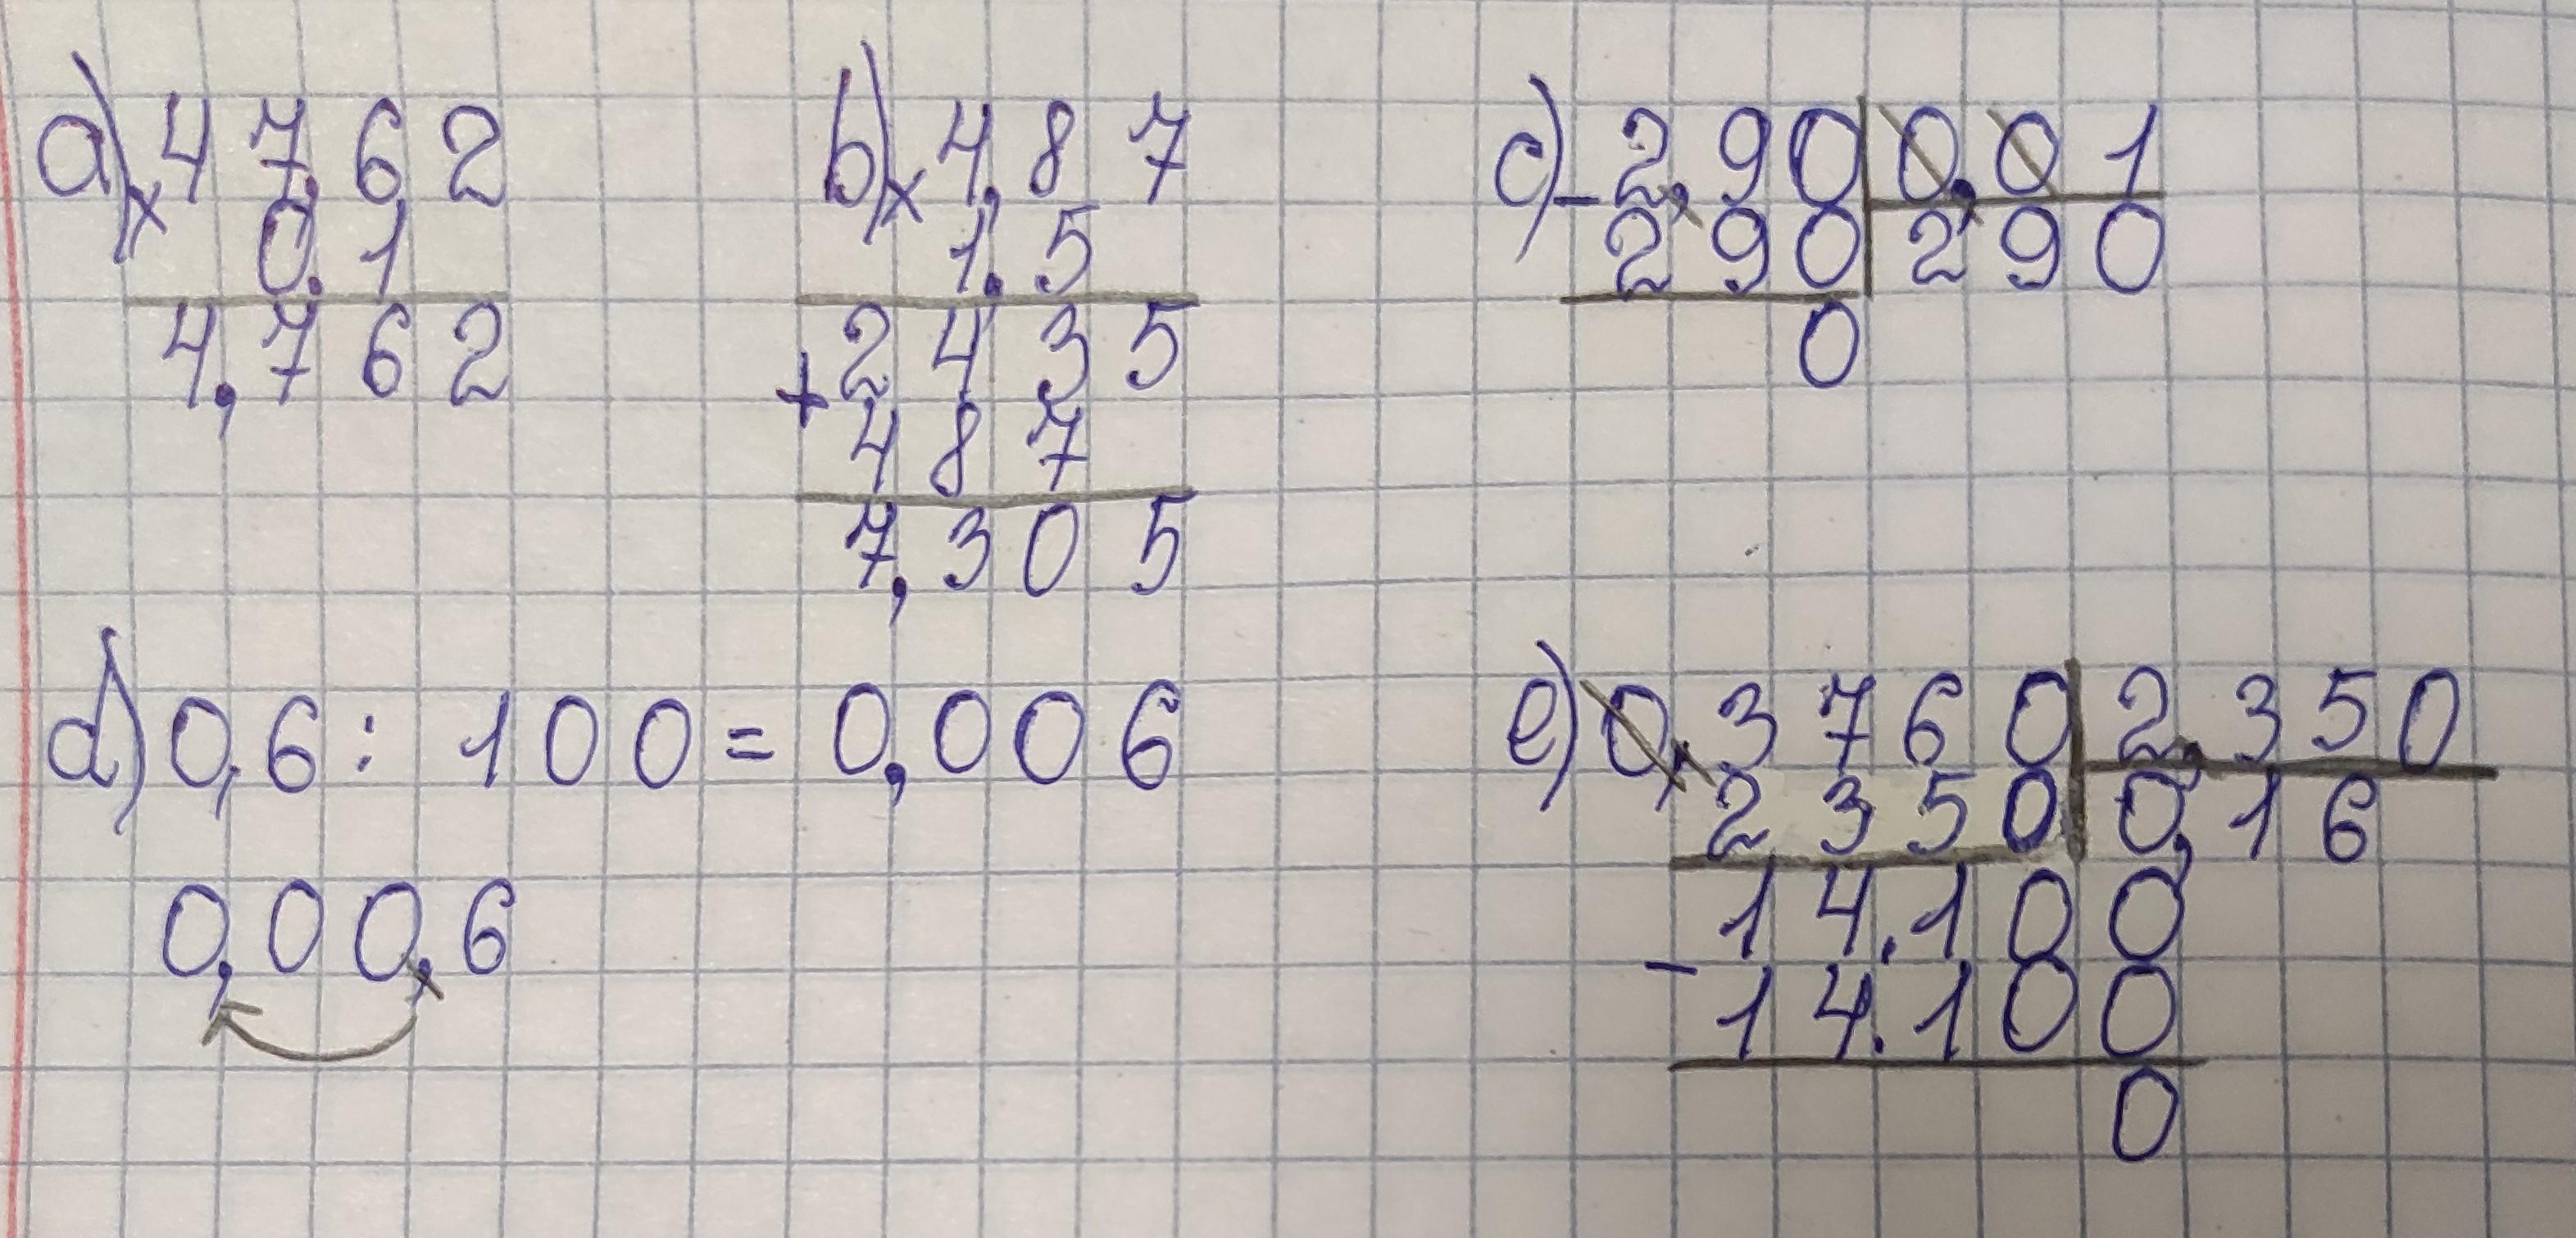 a) × 47,62
0,1
4,762
b) × 4,87
1,5
+ 2435
487
7,305
c) - 2,90 | 0,01
290 | 290
0
d) 0,6 : 100 = 0,006
0,00,6
e) 0,3760 | 2,350
2350 | 0,16
14.100
- 14.100
0